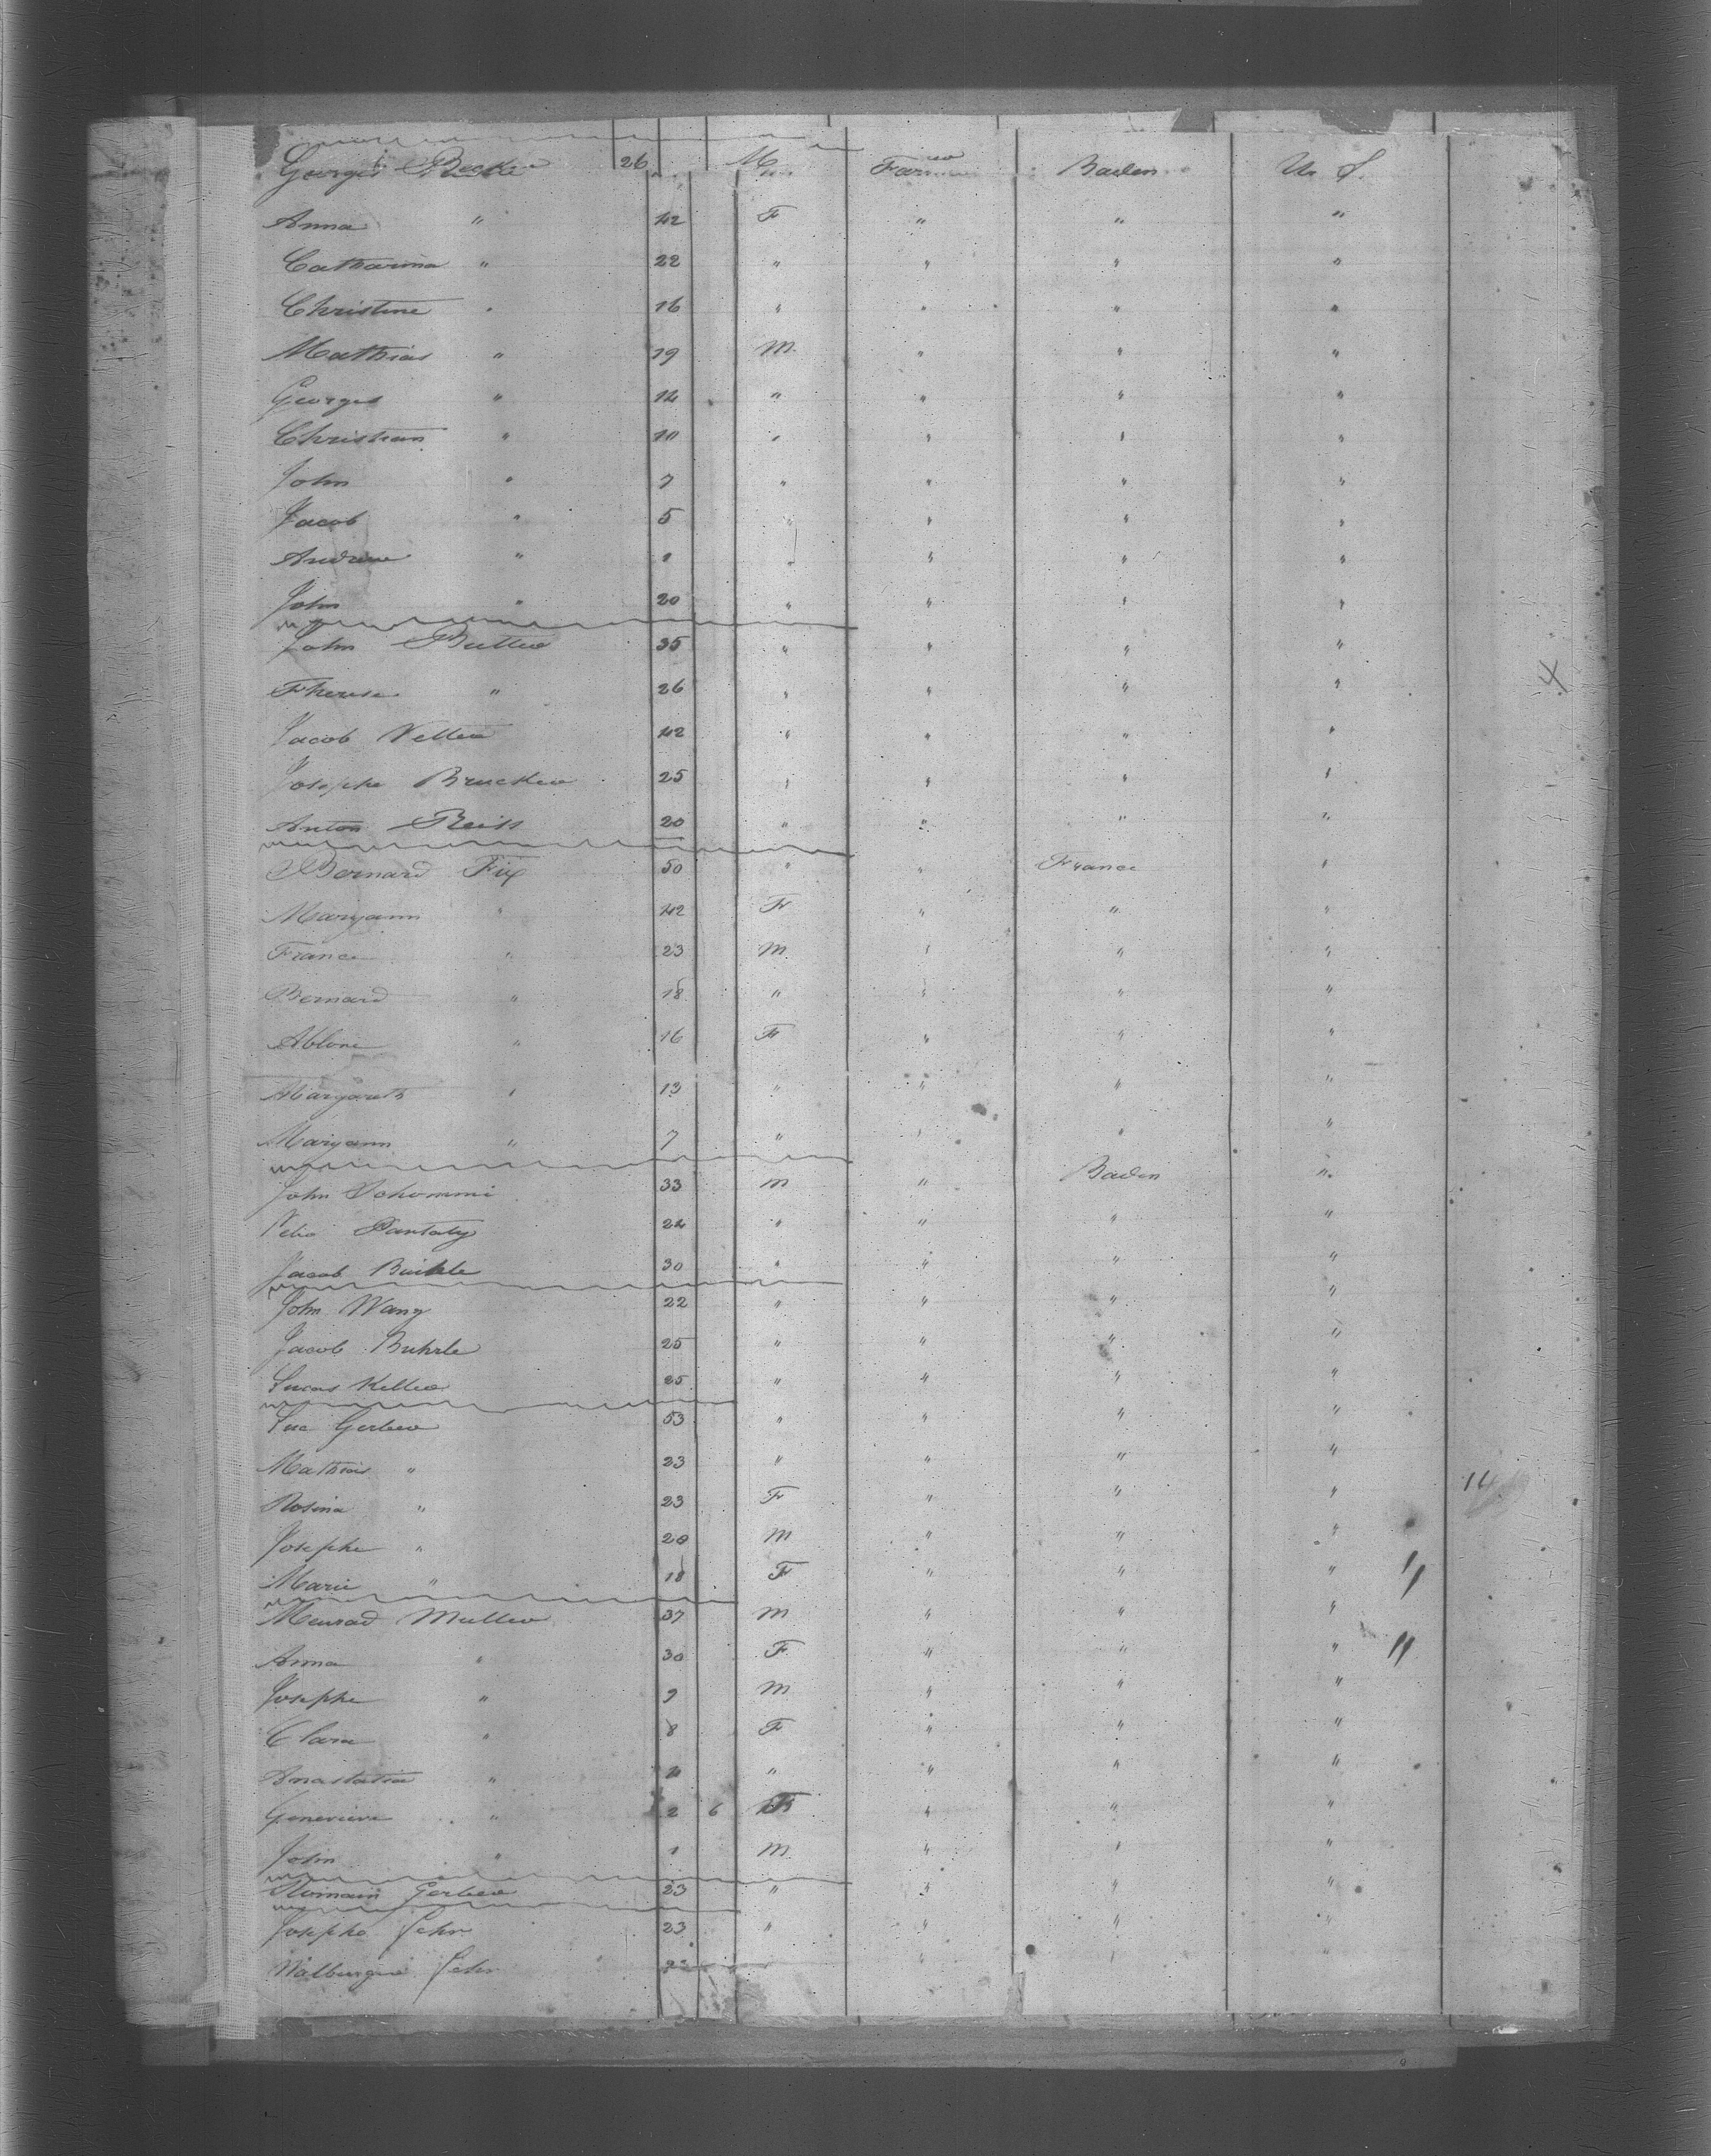 Georges Becker 26 M Farmer Baden U. S.
Anna " 42 F " " "
Catharina " 22 " " " "
Christine " 16 " " " "
Mathias " 19 M " " "
Georges " 14 " " " "
Christian " 10 " " " "
John " 7 " " " "
Jacob " 5 " " " "
Andrew " 1 " " " "
John " 20 " " " "
John 35 " " " "
Therese " 26 " " " "
Jacob Vetter 42 " " " "
Josephe Brucker 25 " " " "
Anton Reiss 20 " " " "
Bernard Fix 50 " " France "
Maryann " 42 F " " "
France " 23 M " " "
Bernard " 18 " " " "
16 F " " "
Margareth " 13 " " " "
Maryann " 7 " " " "
John Schommi 33 M " Baden "
Pantaly 24 " " " "
Jacob 30 " " " "
John Wang 22 " " " "
Jacob Buhrle 25 " " " "
Lucas Keller 25 " " " "
Luc Gerber 53 " " " "
Mathias " 23 " " " "
Rosina " 23 F " " " 14
Josephe " 20 M " " "
Marie " 18 F " " "
Meinrad Muller 37 M " " "
Anna " 30 F " " "
Josephe " 9 M " " "
Clara " 8 F " " "
Anastatia " 4 " " " "
Genevieve " 2 6 F " " "
John " 1 M " " "
Romain Gerber 23 " " " "
Josephe Fehr 23 " " " "
Walburgia Fehr " "